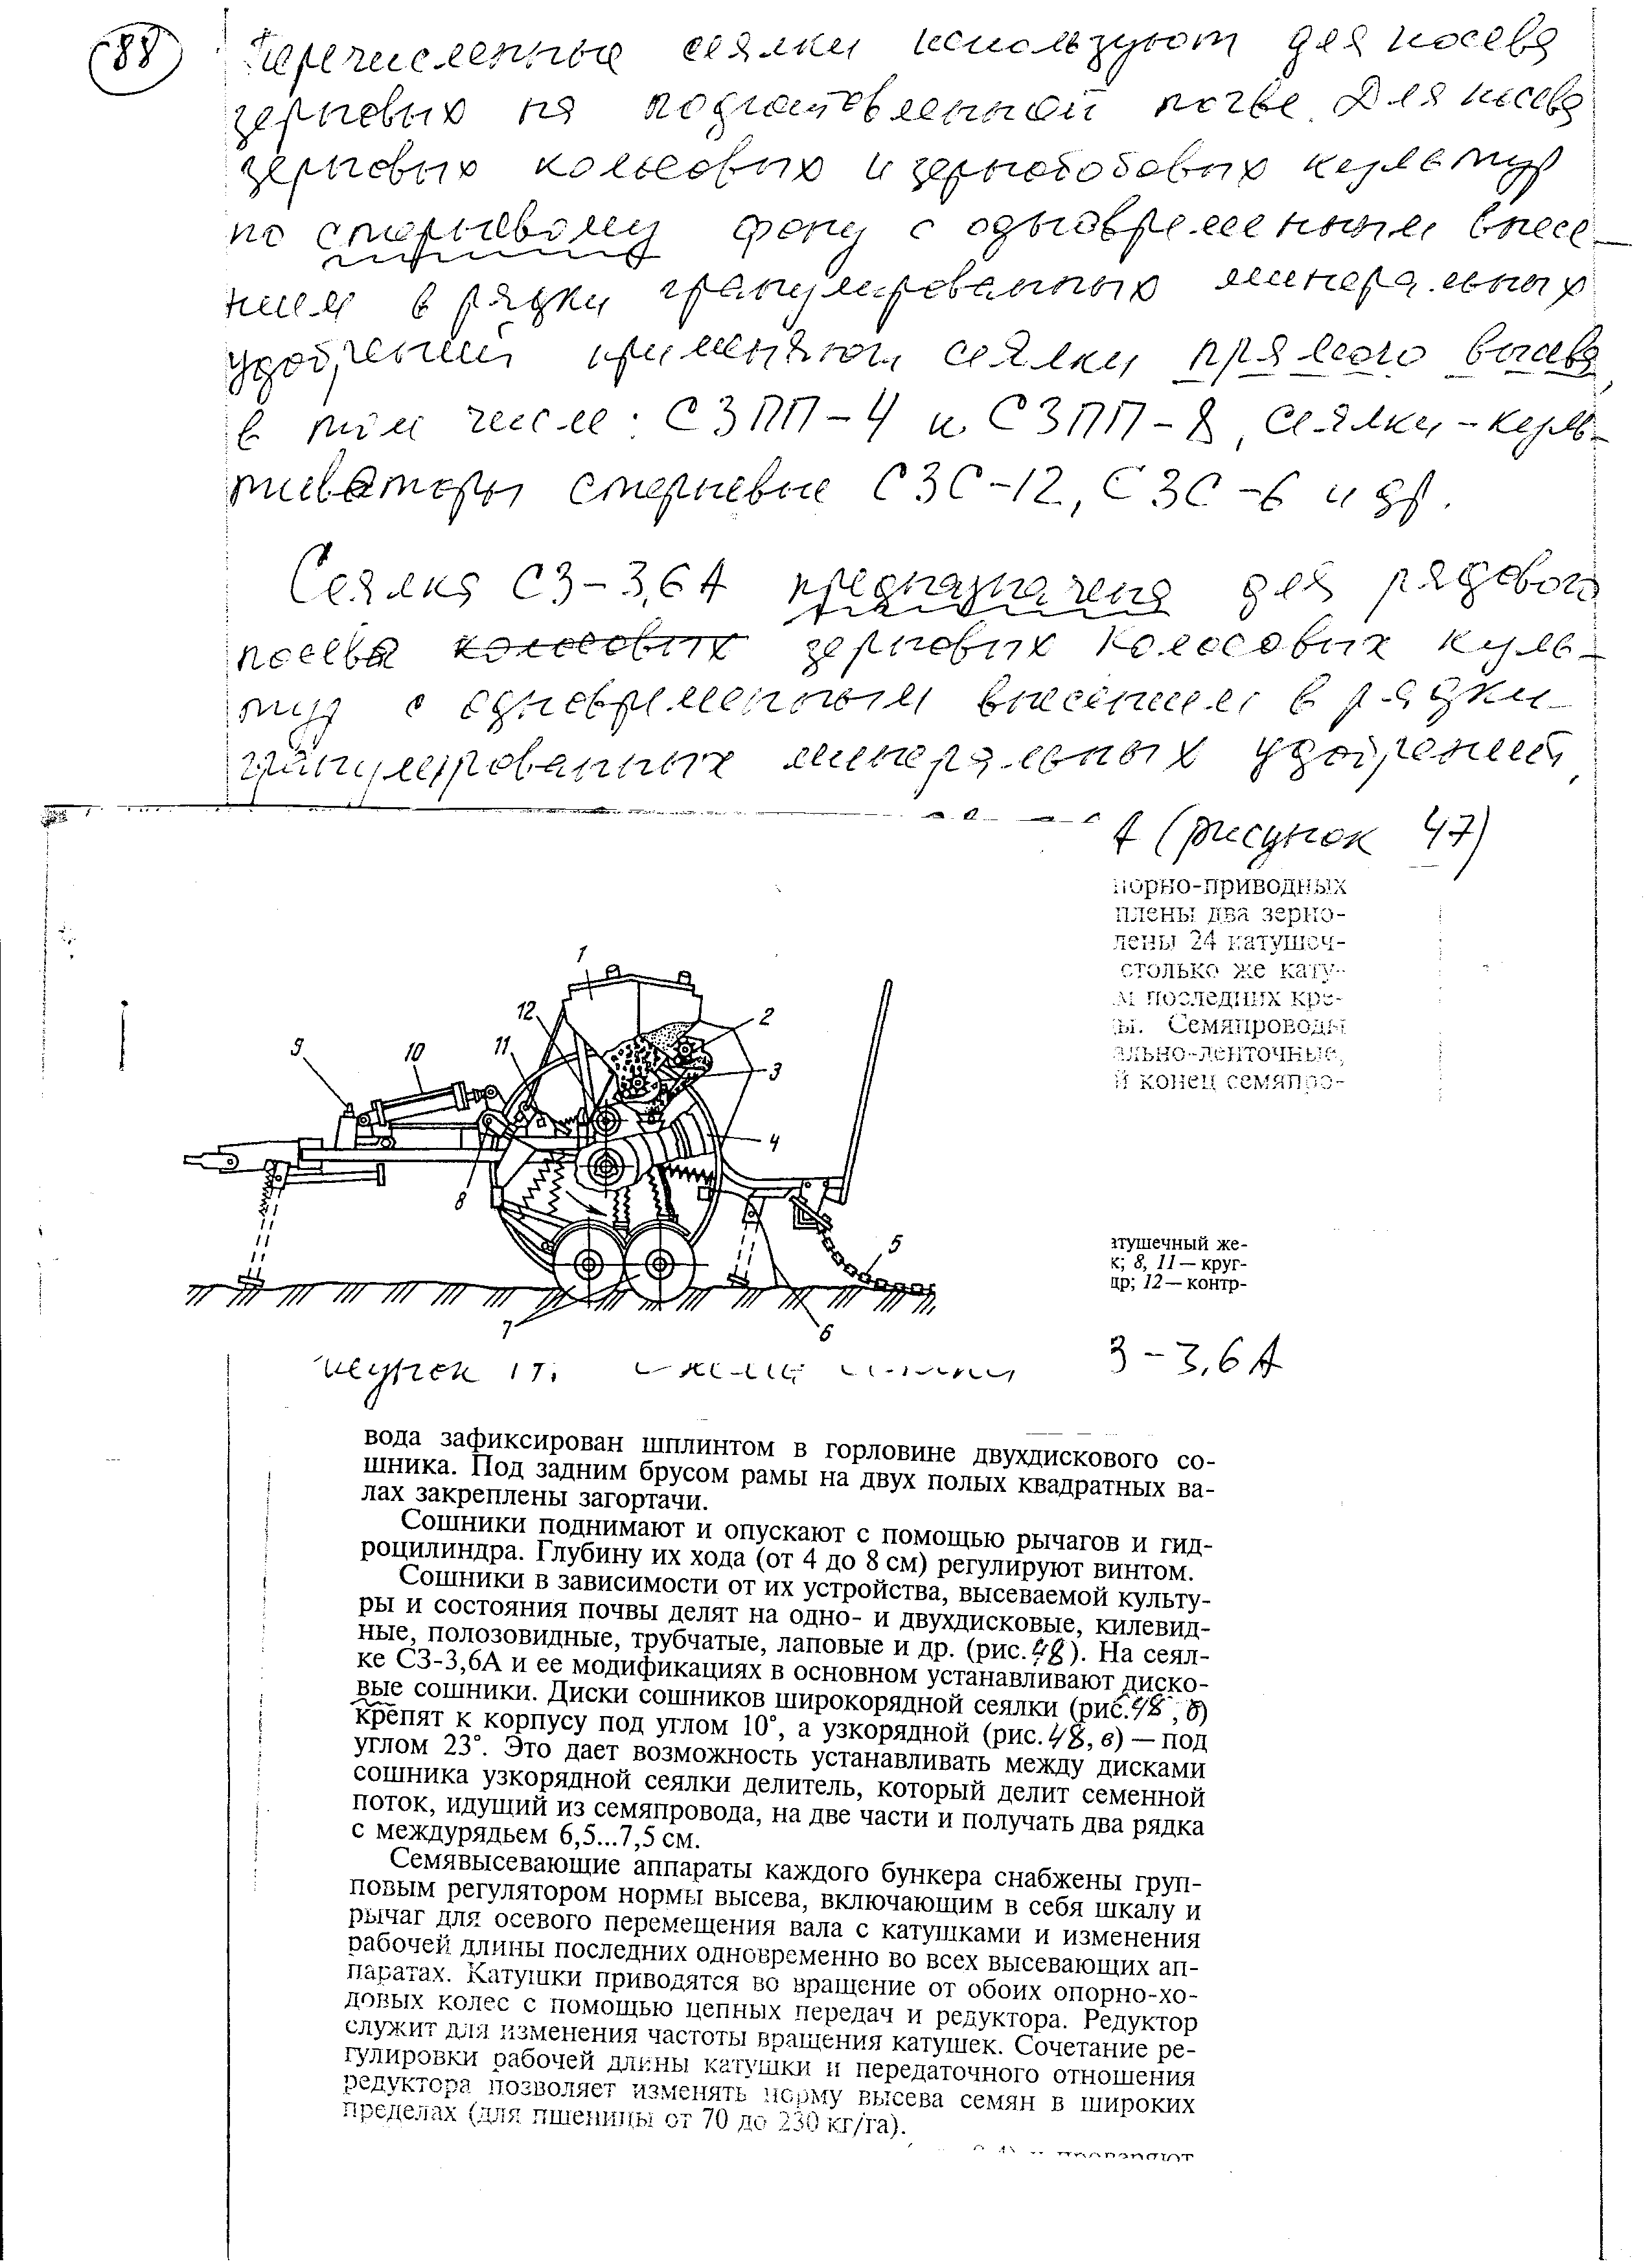 88
Перечисленные сеялки используют для посева
зерновых на подготовленной почве. Для посева
зерновых колосовых и зернобобовых культур
по стерневому фону с одновременным внесе–
нием в рядки гранулированных минеральных
удобрений применяют сеялки прямого высева,
в том числе: СЗПП–4 и СЗПП–8, сеялки–куль–
тиваторы стерневые СЗС–12, СЗС–6 и др.
Сеялка СЗ–3,6А предназначена для рядового
посева колосовых зерновых колосовых куль–
тур с одновременным внесением в рядки
гранулированных минеральных удобрений,
А (рисунок 47)
порно-приводных
плены два зерно-
лены 24 катушеч-
столько же кату-
м последних кре-
ы. Семяпроводы
ально-ленточные,
й конец семяпро-
1
12
2
11
9
10
3
4
8
5
7
6
атушечный же-
к; 8, 11 — круг-
др; 12 — контр-
З – 3,6А
вода зафиксирован шплинтом в горловине двухдискового со-
шника. Под задним брусом рамы на двух полых квадратных ва-
лах закреплены загортачи.
Сошники поднимают и опускают с помощью рычагов и гид-
роцилиндра. Глубину их хода (от 4 до 8 см) регулируют винтом.
Сошники в зависимости от их устройства, высеваемой культу-
ры и состояния почвы делят на одно- и двухдисковые, килевид-
ные, полозовидные, трубчатые, лаповые и др. (рис. 48). На сеял-
ке СЗ-3,6А и ее модификациях в основном устанавливают диско-
вые сошники. Диски сошников широкорядной сеялки (рис. 48, б)
крепят к корпусу под углом 10°, а узкорядной (рис. 48, в) — под
углом 23°. Это дает возможность устанавливать между дисками
сошника узкорядной сеялки делитель, который делит семенной
поток, идущий из семяпровода, на две части и получать два рядка
с междурядьем 6,5...7,5 см.
Семявысевающие аппараты каждого бункера снабжены груп-
повым регулятором нормы высева, включающим в себя шкалу и
рычаг для осевого перемещения вала с катушками и изменения
рабочей длины последних одновременно во всех высевающих ап-
паратах. Катушки приводятся во вращение от обоих опорно-хо-
довых колес с помощью цепных передач и редуктора. Редуктор
служит для изменения частоты вращения катушек. Сочетание ре-
гулировки рабочей длины катушки и передаточного отношения
редуктора позволяет изменять норму высева семян в широких
пределах (для пшеницы от 70 до 230 кг/га).